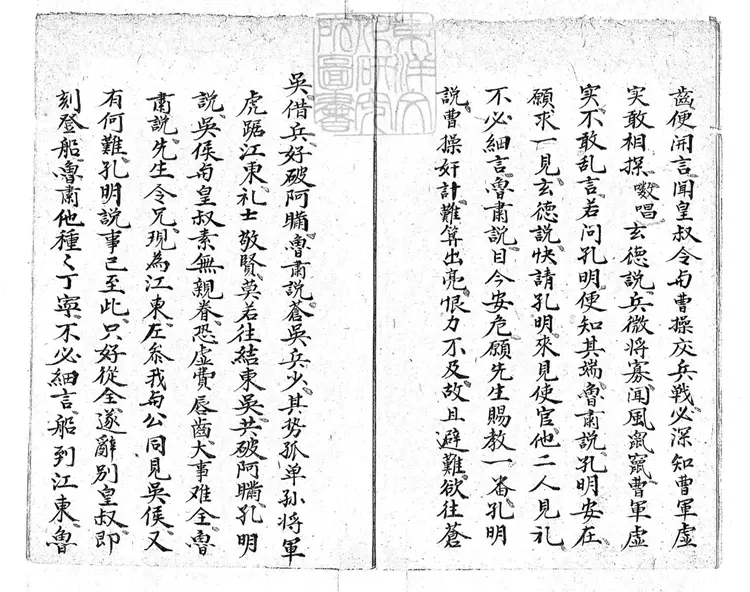 齒便開言聞皇叔令与曹操交兵戰必深知曹軍虛
实敢相探 嗷唱 玄德說兵微將寡聞風鼠竄曹軍虛
实不敢乱言若问孔明便知其端魯肅說孔明安在
願求一見玄德說快請孔明來見使官他二人見礼
不必細言魯肅說目今安危願先生賜教一畨孔明
說曹操奸計難算出亮恨力不及故且避難欲往蒼
吳借兵好破阿瞞魯肅說蒼吳兵少其势孤单孫將軍
虎踞江東礼士敬賢莫若往結東吳共破阿瞞孔明
說吳侯与皇叔素無親眷恐虛費唇齒大事难全魯
肅說先生令兄現為江東左叅我与公同見吳侯又
有何難孔明說事已至此只好從全遂辭別皇叔即
刻登船魯肅他種〻丁寕不必細言船到江東魯
東洋文化研究所圖書